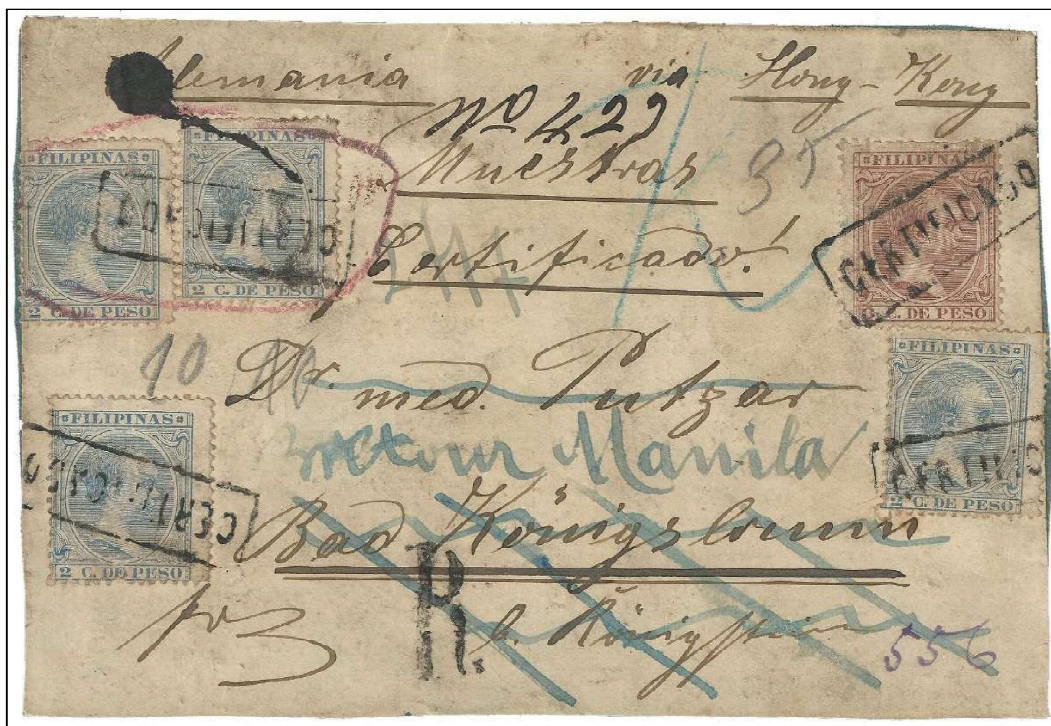 Alemania via Hong-Kong
No 429
Muestras
35
Certificado!
FILIPINAS
2 C. DE PESO
CERTIFICADO
FILIPINAS
2 C. DE PESO
FILIPINAS
C. DE PESO
CERTIFICADO
10
10
Dr. med. Putzar
retour Manila
FILIPINAS
2 C. DE PESO
CERTIFICADO
FILIPINAS
2 C. DE PESO
CERTIFIC
Bad Königsbrunn
R.
b. Königstein
556